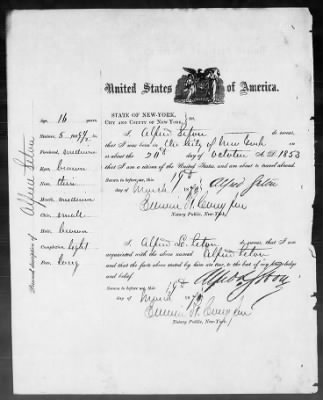 United States of America.
STATE OF NEW-YORK,
CITY AND COUNTY OF NEW-YORK, } ss.
I Alfred Seton do swear,
that I was born in the City of New York
on or about the 20th day of October A. D. 1853
that I am a citizen of the United States, and am about to travel abroad.
Sworn to before me, this 19th
day of March 1870 Alfred Seton
Notary Public, New-York.
I Alfred L. Seton do swear, that I am
acquainted with the above named Alfred Seton
and that the facts above stated by him are true, to the best of my knowledge
and belief.
Sworn to before me, this 19th
day of March 1870 Alfred L Seton
Notary Public, New-York.
Personal description of Alfred Seton
Age, 16 years
Stature, 5 feet 9 1/2 in.
Forehead, medium
Eyes, brown
Nose, thin
Mouth, medium
Chin, small
Hair, brown
Complexion, light
Face, long